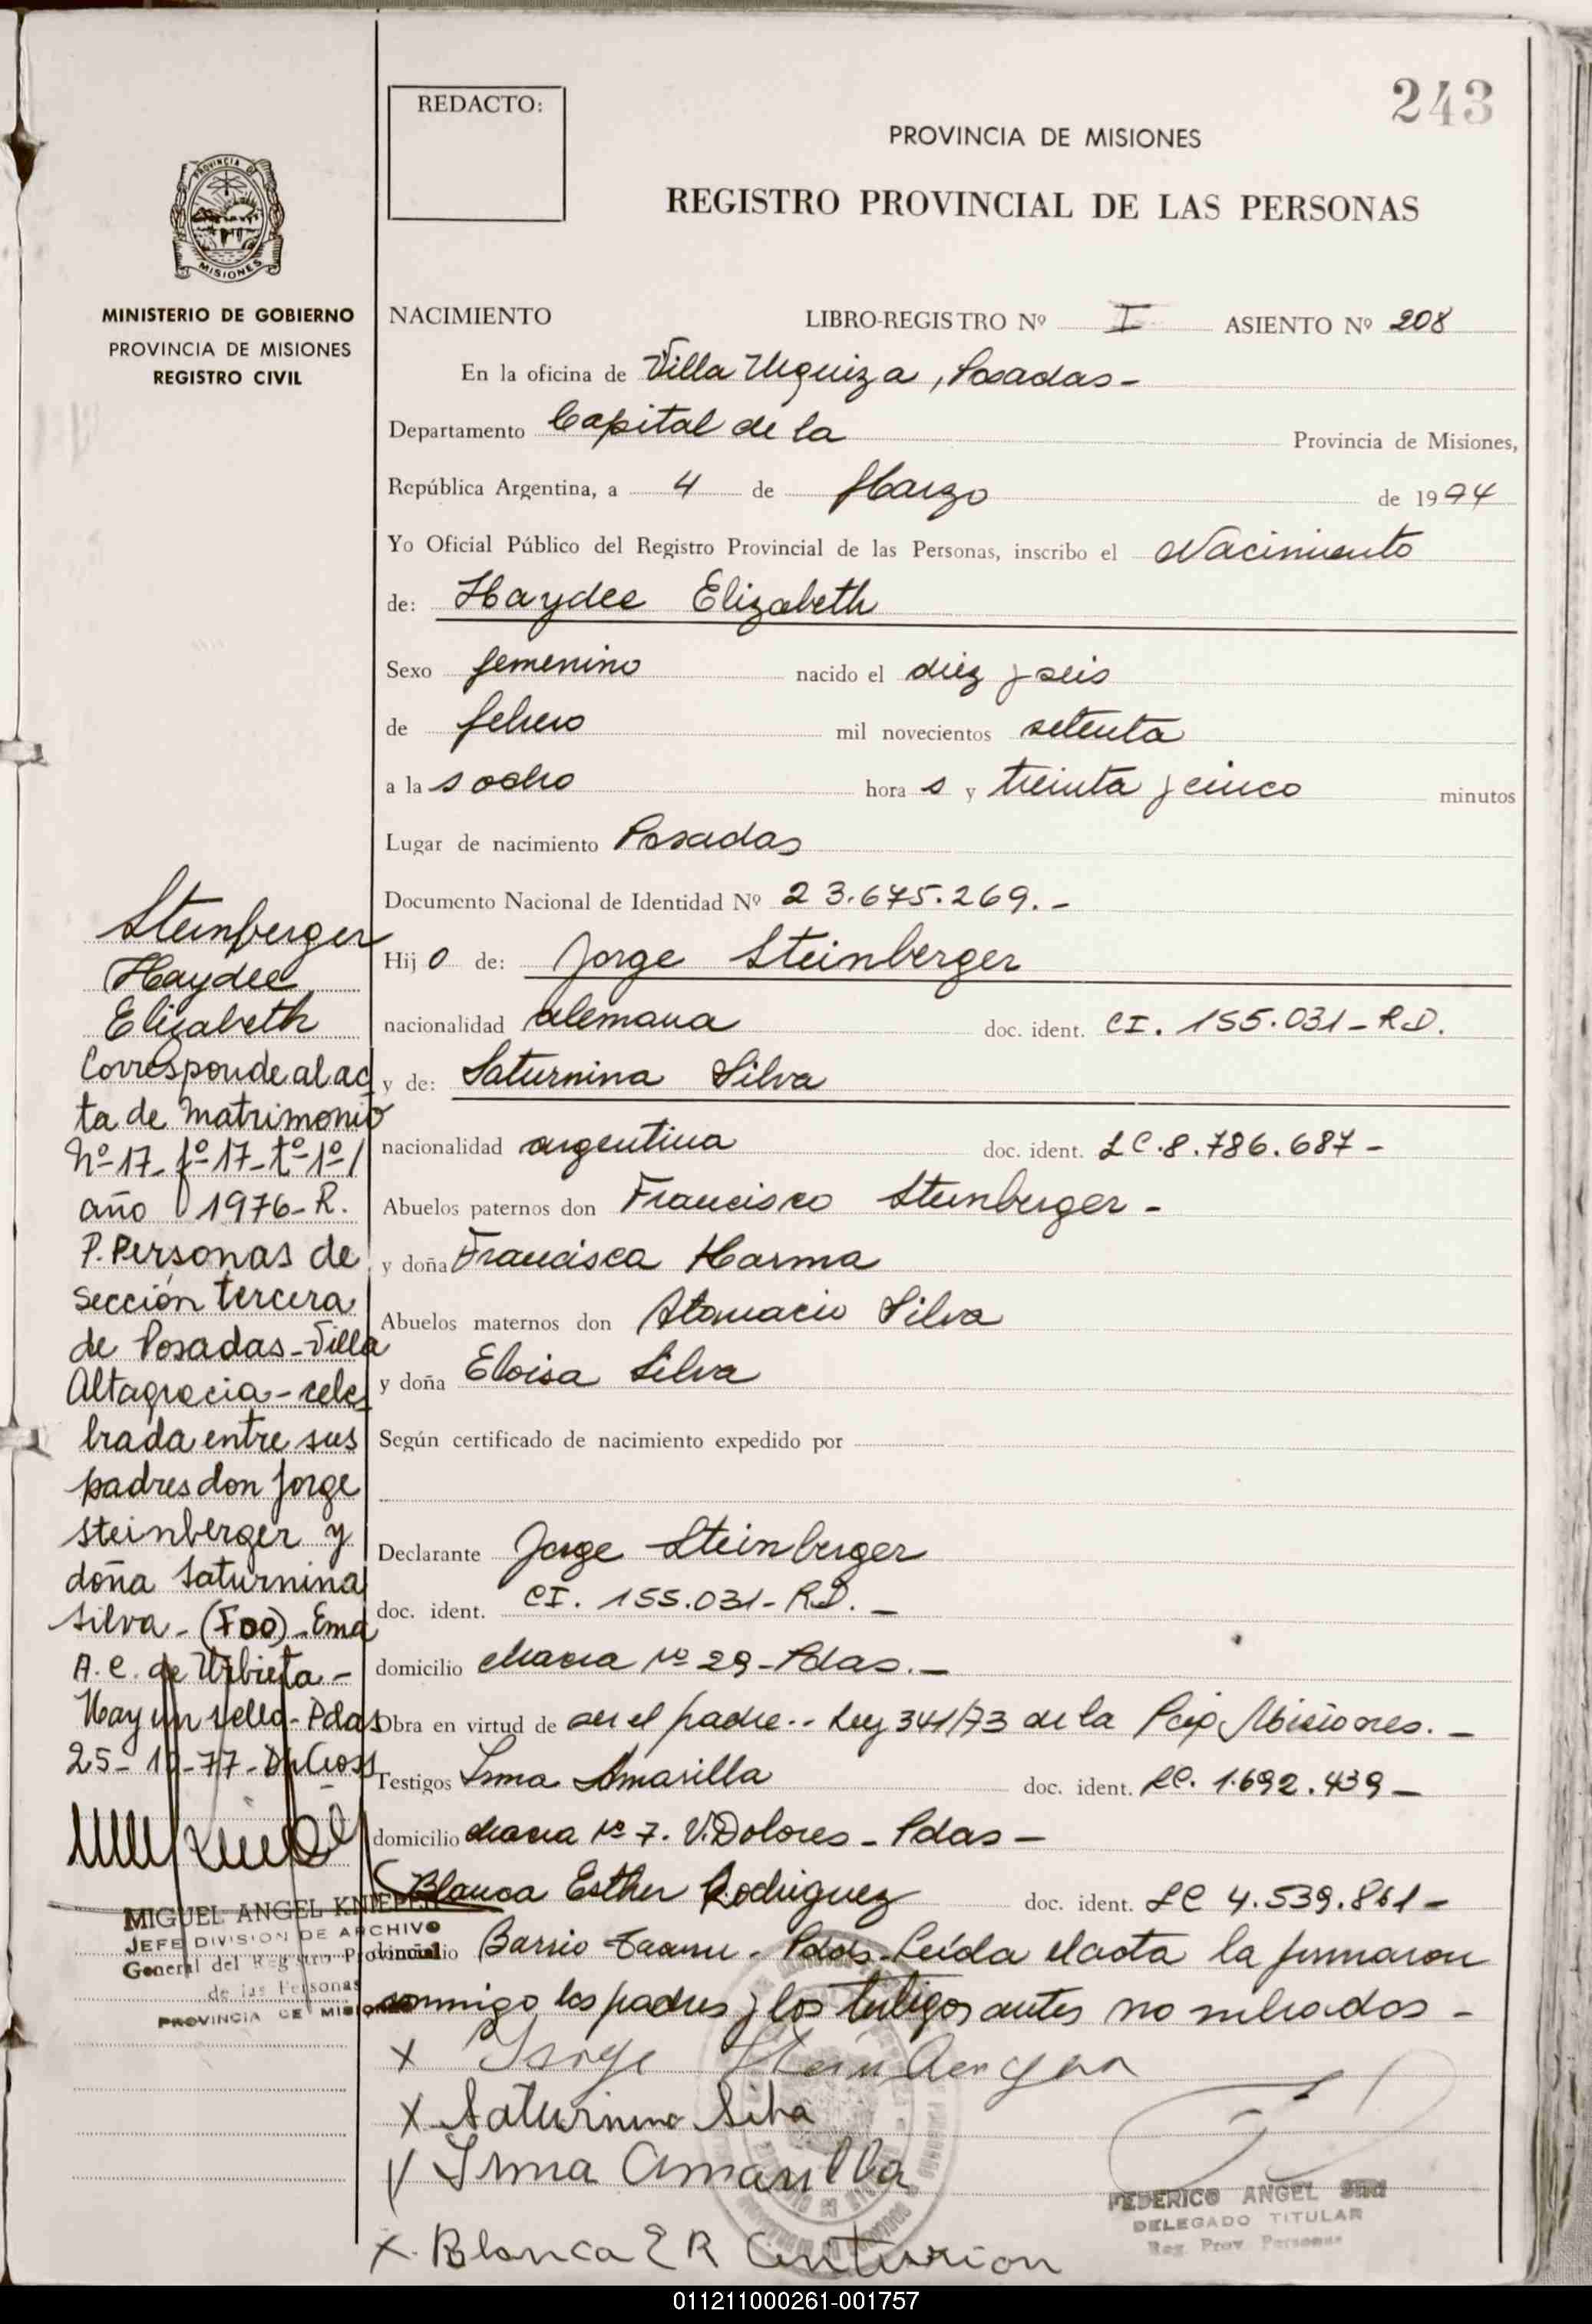 243
REDACTO:
PROVINCIA DE MISIONES
REGISTRO PROVINCIAL DE LAS PERSONAS
PROVINCIA DE
MISIONES
MINISTERIO DE GOBIERNO
PROVINCIA DE MISIONES
REGISTRO CIVIL
NACIMIENTO LIBRO-REGISTRO Nº I ASIENTO Nº 208
En la oficina de Villa Urquiza, Posadas-
Departamento Capital de la Provincia de Misiones,
República Argentina, a 4 de Marzo de 1974
Yo Oficial Público del Registro Provincial de las Personas, inscribo el Nacimiento
de: Haydee Elizabeth
Sexo femenino nacido el diez y seis
de febrero mil novecientos setenta
a las ocho hora s y treinta y cinco minutos
Lugar de nacimiento Posadas
Documento Nacional de Identidad Nº 23.675.269.-
Hij o de: Jorge Steinberger
nacionalidad alemana doc. ident. CI. 155.031-R.D.
y de: Saturnina Silva
nacionalidad argentina doc. ident. LC.8.786.687-
Abuelos paternos don Francisco Steinberger-
y doña Francisca Harma
Abuelos maternos don Silva
y doña Eloisa Silva
Según certificado de nacimiento expedido por
Declarante Jorge Steinberger
doc. ident. CI. 155.031-R.D.-
domicilio chacra Nº 29-Pdas.-
Obra en virtud de ser el padre.- Ley 341/73 de la Misiones.-
Testigos Irma Amarilla doc. ident. LC. 1.692.439-
domicilio chacra Nº 7. V. Dolores-Pdas-
Blanca Esther Rodriguez doc. ident. LC 4.539.861-
domicilio Barrio - Pdas-Leída el acta la firmaron
conmigo los padres y los testigos antes nombrados-
x Jorge Steinberger
x Saturnina Silva
Irma Amarilla
x Blanca E R Centurion
FEDERICO ANGEL
DELEGADO TITULAR
Reg. Prov. Personas
Steinberger
Haydee
Elizabeth
Corresponde al ac
ta de matrimonio
Nº 17-fº 17-tº 1º/
año 1976-R.
P. Personas de
Sección tercera
de Posadas-Villa
Altagracia-cele
brada entre sus
padres don Jorge
Steinberger y
doña Saturnina
Silva-(Fdo)-Ema
A. C. de Urbieta-
Hay un sello-Pdas
25-10-77-
MIGUEL ANGEL
JEFE DIVISION DE ARCHIVO
General del Registro Provincial
de las Personas
PROVINCIA DE MISIONES
011211000261-001757